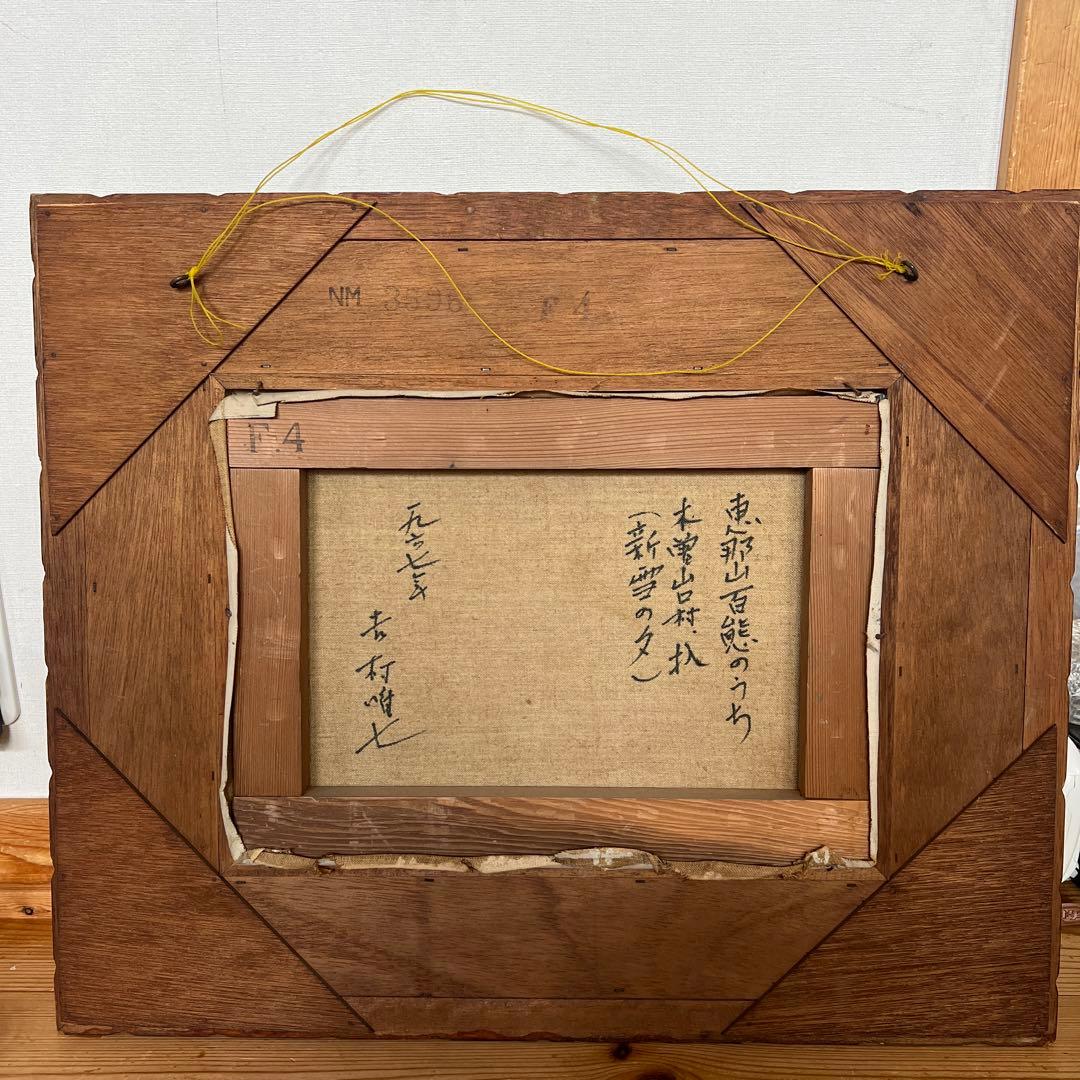 NM 3596 F 4
F.4
恵那山百態のうち
木曽山口村、扒
(新雪の夕)
一九六七年
吉村唯七